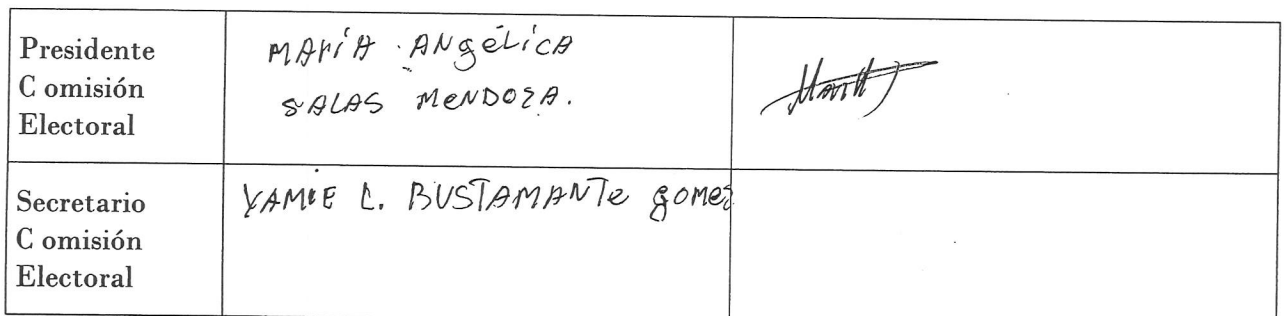 Presidente
C omisión
Electoral
MARÍA ANGÉLICA
SALAS MENDOZA.
Secretario
C omisión
Electoral
YAMIE C. BUSTAMANTE GOMEZ